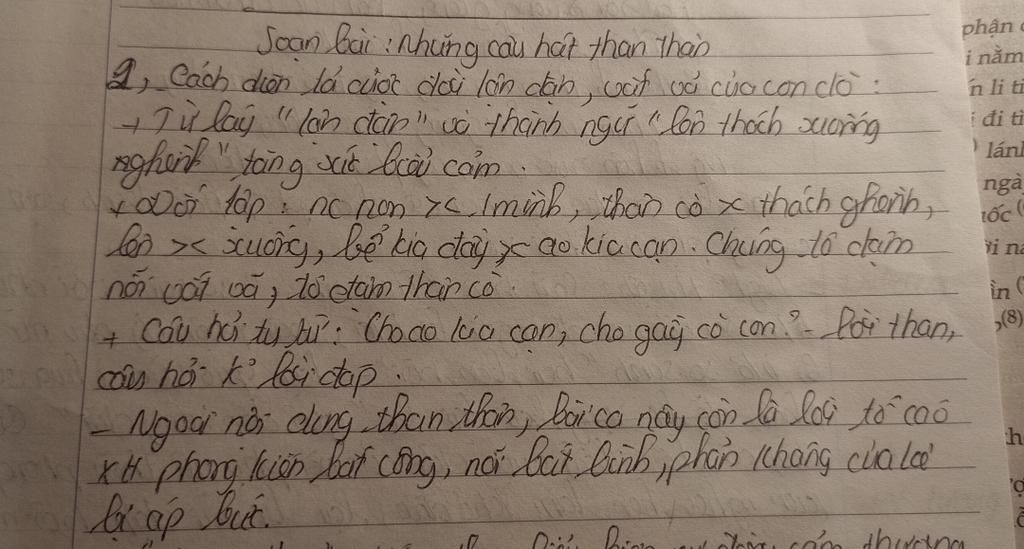 Soạn bài: Những câu hát than thân
2, Cách diễn tả cuộc đời lận đận, vất vả của con cò:
+ Từ láy "lận đận" và thành ngữ "lên thác xuống
nghềnh" tăng sức biểu cảm.
+ Đối lập: nc non >< 1 mình, thân cò >< thác ghềnh,
lên >< xuống, bể kia đầy >< ao kia cạn. Chúng tô đậm
nỗi vất vả, tô đậm thân cò.
+ Câu hỏi tu từ: "Cho ao kia cạn, cho gầy cò con? - Lời than,
câu hỏi k° lời đáp.
- Ngoài nội dung than thân, bài ca này còn là lời tố cáo
XH phong kiến bất công, nỗi bất bình, phản kháng của
bị áp bức.
phận
i nằm
n li ti
đi tì
lánh
ngà
(8)
thương